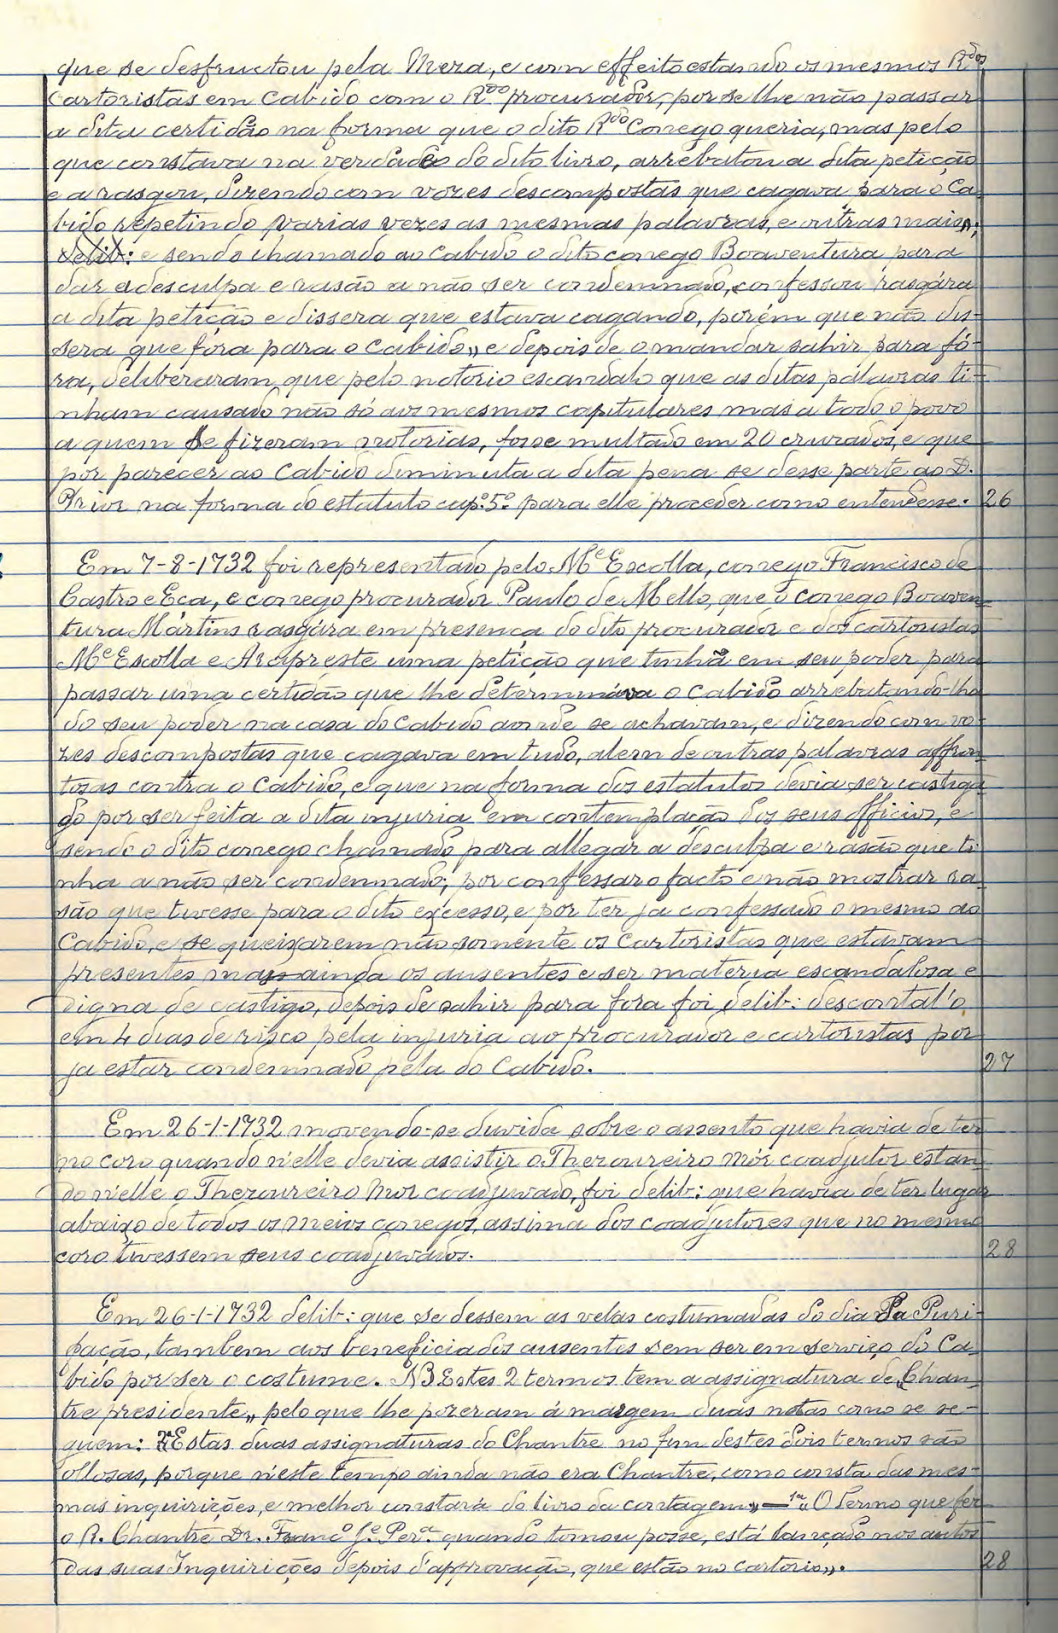 que se desfructou pela Meza, e com effeito estando os mesmos R.dos
Cartoristas em Cabido com o R.do procurador, por se lhe não passar
a dita certidão na forma que o dito R.do Conego queria, mas pelo
que constava na verdade do dito livro, arrebatou a dita petição
e a rasgou, dizendo com vozes descompostas que cagava para o Ca
bido repetindo varias vezes as mesmas palavras, e outras mais,,;
delib: e sendo chamado ao Cabido o dito conego Boaventura para
dar a desculpa e rasão a não ser condemnado, confessou rasgára
a dita petição e dissera que estava cagando, porém que não dis-
sera que fora para o Cabido,, e depois de o mandar sahir para fó-
ra, deliberaram que pelo notorio escandalo que as ditas palavras ti-
nham causado não só aos mesmos capitulares mas a todo o povo
a quem se fizeram notorias, fosse multado em 20 cruzados, e que
por parecer ao Cabido diminuta a dita pena se desse parte ao D.
Prior na forma do estatuto cap.º 5.º para elle proceder como entendesse. 26
Em 7-8-1732 foi representado pelo M.e Escolla, conego Francisco de
Castro e Eça, e conego procurador Paulo de Mello, que o conego Boaven-
tura Martins rasgára em presença do dito procurador e dos cartoristas
M.e Escolla e Arcipreste uma petição que tinha em seu poder para
passar uma certidão que lhe determinára o Cabido arrebatando-lha
do seu poder na casa do Cabido aonde se achavam, e dizendo com vo-
zes descompostas que cagava em tudo, alem de outras palavras affron
tosas contra o Cabido, e que na forma dos estatutos devia ser castiga
do por ser feita a dita injuria em contemplação dos seus officios, e
sendo o dito conego chamado para allegar a desculpa e rasão que ti
nha a não ser condemnado; por confessar o facto e não mostrar ra-
são que tivesse para o dito excesso, e por ter ja confessado o mesmo ao
Cabido, e se queixarem não somente os Cartoristas que estavam
presentes mas ainda os ausentes e ser materia escandalosa e
digna de castigo, depois de sahir para fora foi delib: descontal'o
em 4 dias de risco pela injuria ao procurador e cartoristas por
ja estar condemnado pela do Cabido. 27
Em 26-1-1732 movendo-se duvida sobre o assento que havia de ter
no coro quando n'elle devia assistir o Thezoureiro Mór coadjutor estan-
do n'elle o Thezoureiro Mor coadjuvado, foi delib: que havia de ter lugar
abaixo de todos os meios conegos, assima dos coadjutores que no mesmo
coro tivessem seus coadjuvados. 28
Em 26-1-1732 delib: que se dessem as velas costumadas do dia da Puri-
ficação, tambem aos beneficiados ausentes sem ser em serviço do Ca-
bido por ser o costume. NB Estes 2 termos tem a assignatura de,,Chan-
tre presidente,, pelo que lhe pozeram á margem duas notas como se se-
guem: Estas duas assignaturas do Chantre no fim destes dois termos são
ollosas, porque n'este tempo ainda não era Chantre, como consta das mes-
mas inquirições, e melhor constará do livro da contagem,, — 1.ª ,,O termo que fez
o R. Chantre Dr. Franc.º J.e Per.a quando tomou posse, está lançado nos autos
das suas Inquirições depois d'approvação, que estão no cartorio,,. 28